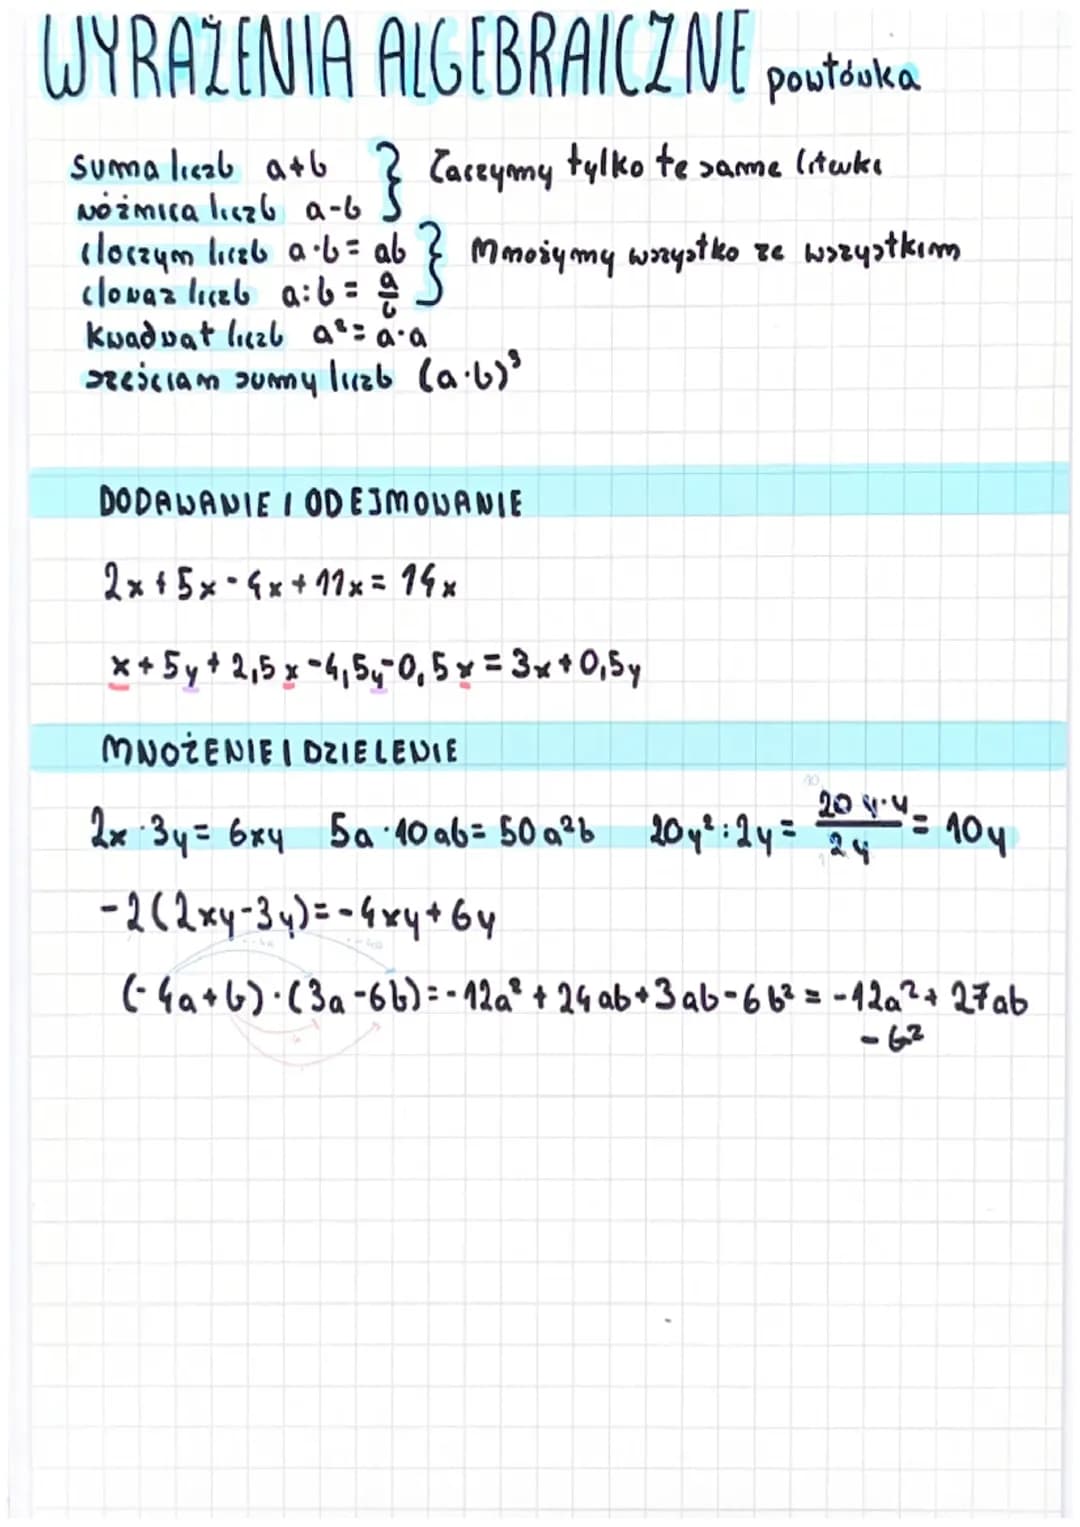 WYRAŻENIA ALGEBRAICZNE powtórka
suma liczb a+b } Łączymy tylko te same literki
różnica liczb a-b
iloczyn liczb a·b = ab } Mnożymy wszystko ze wszystkim
iloraz liczb a:b = a/b
kwadrat liczb a² = a·a
sześcian sumy liczb (a·b)³
DODAWANIE I ODEJMOWANIE
2x + 5x - 4x + 11x = 14x
x + 5y + 2,5x - 4,5y - 0,5x = 3x + 0,5y
MNOŻENIE I DZIELENIE
2x · 3y = 6xy 5a · 10ab = 50a²b 20y² : 2y = 20y·y/2y = 10y
-2(2xy-3y) = -4xy + 6y
(-4a+b)·(3a-6b) = -12a² + 24ab + 3ab - 6b² = -12a² + 27ab
- 6²